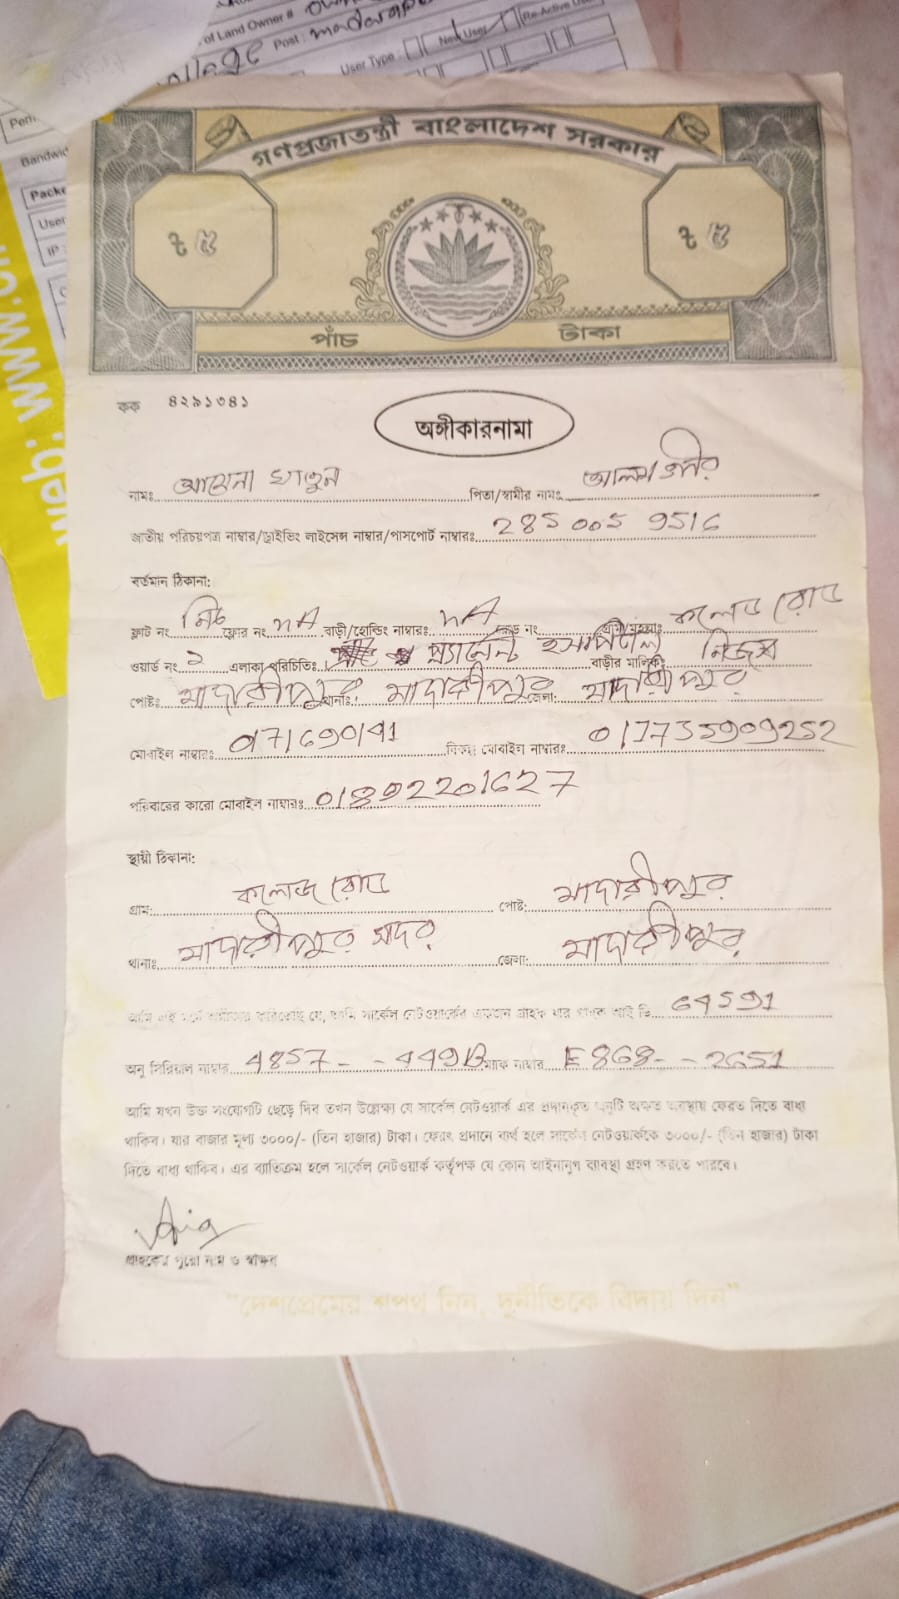 of Land Owner #
ollege Post : madarap
User Type : New User Re-Active User
Bandwid
Packe
User
IP :
web: www.ci
গণপ্রজাতন্ত্রী বাংলাদেশ সরকার
৳ ৫ ৳ ৫
পাঁচ টাকা
কক ৪২৯১৩৪১
অঙ্গীকারনামা
নামঃ আয়েনা খাতুন পিতা/স্বামীর নামঃ আলমগীর
জাতীয় পরিচয়পত্র নাম্বার/ড্রাইভিং লাইসেন্স নাম্বার/পাসপোর্ট নাম্বারঃ 285 005 9516
বর্তমান ঠিকানা:
ফ্লাট নং নিচ ফ্লোর নং NA বাড়ী/হোল্ডিং নাম্বারঃ NA রোড নং গ্রাম/মহল্লাঃ কলেজ রোড
ওয়ার্ড নং ২ এলাকা পরিচিতিঃ প্ল্যানেট হসপিটাল বাড়ীর মালিক নিজস্ব
পোষ্টঃ মাদারীপুর থানাঃ মাদারীপুর জেলা: মাদারীপুর
মোবাইল নাম্বারঃ 071690141 বিকল্প মোবাইল নাম্বারঃ 017735909252
পরিবারের কারো মোবাইল নাম্বারঃ 01892201627
স্থায়ী ঠিকানা:
গ্রাম: কলেজ রোড পোষ্ট: মাদারীপুর
থানাঃ মাদারীপুর সদর জেলা: মাদারীপুর
আমি এই মর্মে অঙ্গীকার করিতেছি যে, আমি সার্কেল নেটওয়ার্কের একজন গ্রাহক যার গ্রাহক আই ডি 64591
অনু সিরিয়াল নাম্বার 4857- - 449B ম্যাক নাম্বার E868- - 2651
আমি যখন উক্ত সংযোগটি ছেড়ে দিব তখন উল্লেক্ষ্য যে সার্কেল নেটওয়ার্ক এর প্রদানকৃত অনুটি অক্ষত অবস্থায় ফেরত দিতে বাধ্য
থাকিব। যার বাজার মূল্য ৩০০০/- (তিন হাজার) টাকা। ফেরৎ প্রদানে ব্যর্থ হলে সার্কেল নেটওয়ার্ককে ৩০০০/- (তিন হাজার) টাকা
দিতে বাধ্য থাকিব। এর ব্যাতিক্রম হলে সার্কেল নেটওয়ার্ক কর্তৃপক্ষ যে কোন আইনানুগ ব্যবস্থা গ্রহণ করতে পারবে।
গ্রাহকের পুরো নাম ও স্বাক্ষর
"দেশপ্রেমের শপথ নিন, দুর্নীতিকে বিদায় দিন"